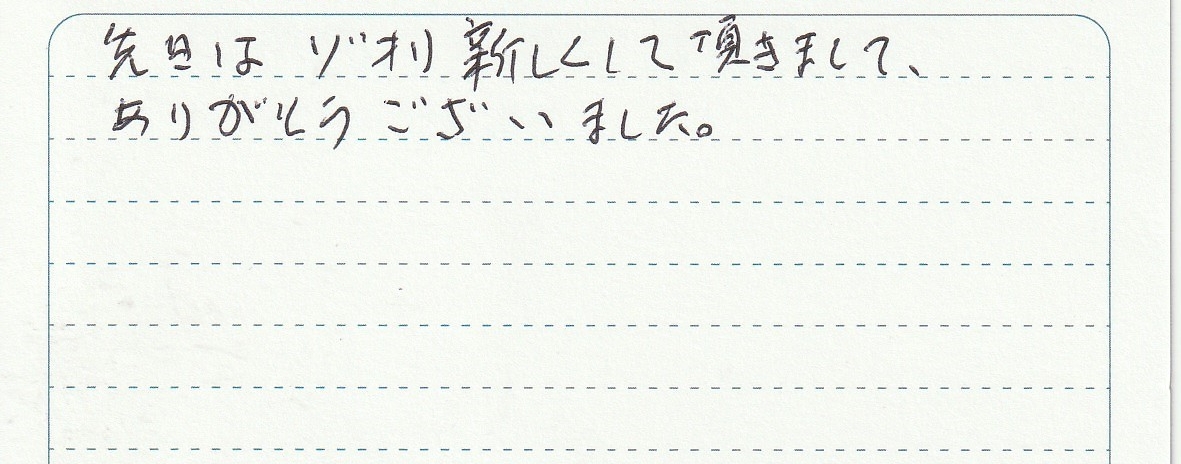 先日はゾオリ新しくして頂きまして、
ありがとうございました。